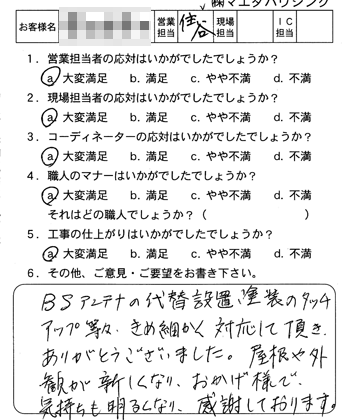 ㈱マエダハウジング
お客様名 営業担当 住谷 現場担当 IC担当
1．営業担当者の応対はいかがでしたでしょうか？
a 大変満足 b. 満足 c. やや不満 d. 不満
2．現場担当者の応対はいかがでしたでしょうか？
a 大変満足 b. 満足 c. やや不満 d. 不満
3．コーディネーターの応対はいかがでしたでしょうか？
a 大変満足 b. 満足 c. やや不満 d. 不満
4．職人のマナーはいかがでしたでしょうか？
a. 大変満足 b. 満足 c. やや不満 d. 不満
それはどの職人でしょうか？（ ）
5．工事の仕上がりはいかがでしたでしょうか？
a. 大変満足 b. 満足 c. やや不満 d. 不満
6．その他、ご意見・ご要望をお書き下さい。
BSアンテナの代替設置、塗装のタッチ
アップ等々、きめ細かく対応して頂き、
ありがとうございました。屋根や外
観が新しくなり、おかげ様で、
気持ちも明るくなり、感謝しております。